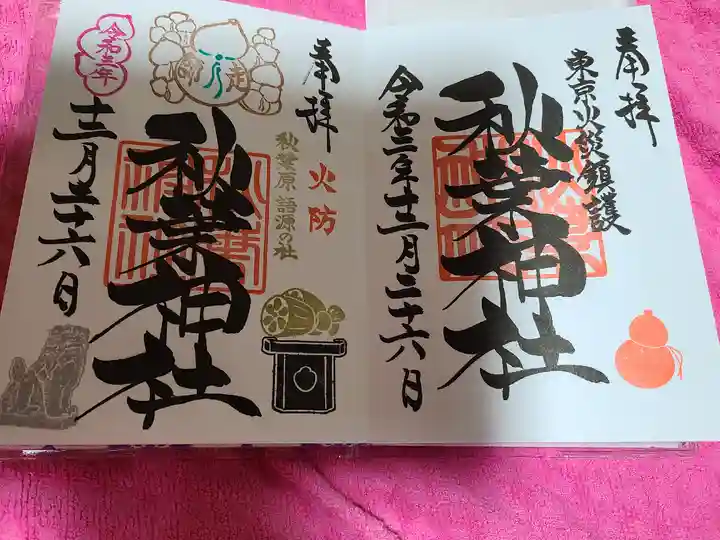 奉拝
東京火災鎮護
秋葉神社
令和三年十二月二十六日
奉拝
火防
秋葉原 語源の社
秋葉神社
令和三年
十二月二十六日